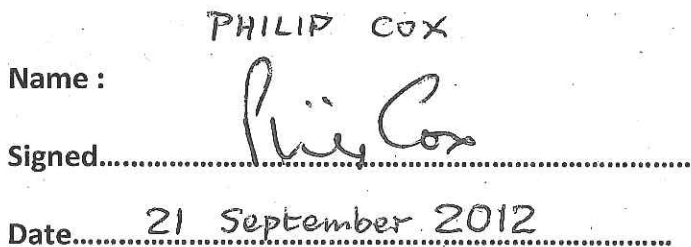 PHILIP COX
Name :
Signed.......... Philip Cox
Date.......... 21 September 2012